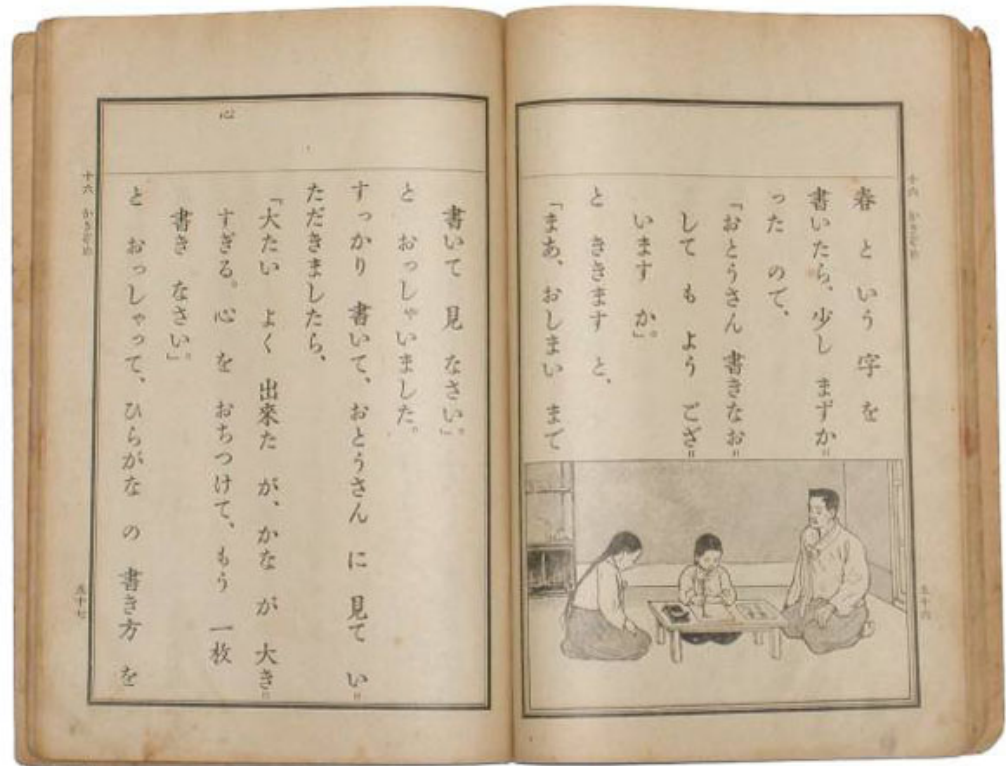 春 と いう 字 を
書いたら、少し まずか〃
った ので、
「おとうさん 書きなお〃
して も よう ござ〃
います か。」
と ききます と、
「まあ、おしまい まで
十六 かきぞめ
五十六
心
書いて 見 なさい。」
と おっしゃいました。
すっかり 書いて、おとうさん に 見て い〃
ただきましたら、
「大たい よく 出來た が、かな が 大き〃
すぎる。心 を おちつけて、もう 一枚
書き なさい。」
と おっしゃって、ひらがな の 書き方 を
十六 かきぞめ
五十七